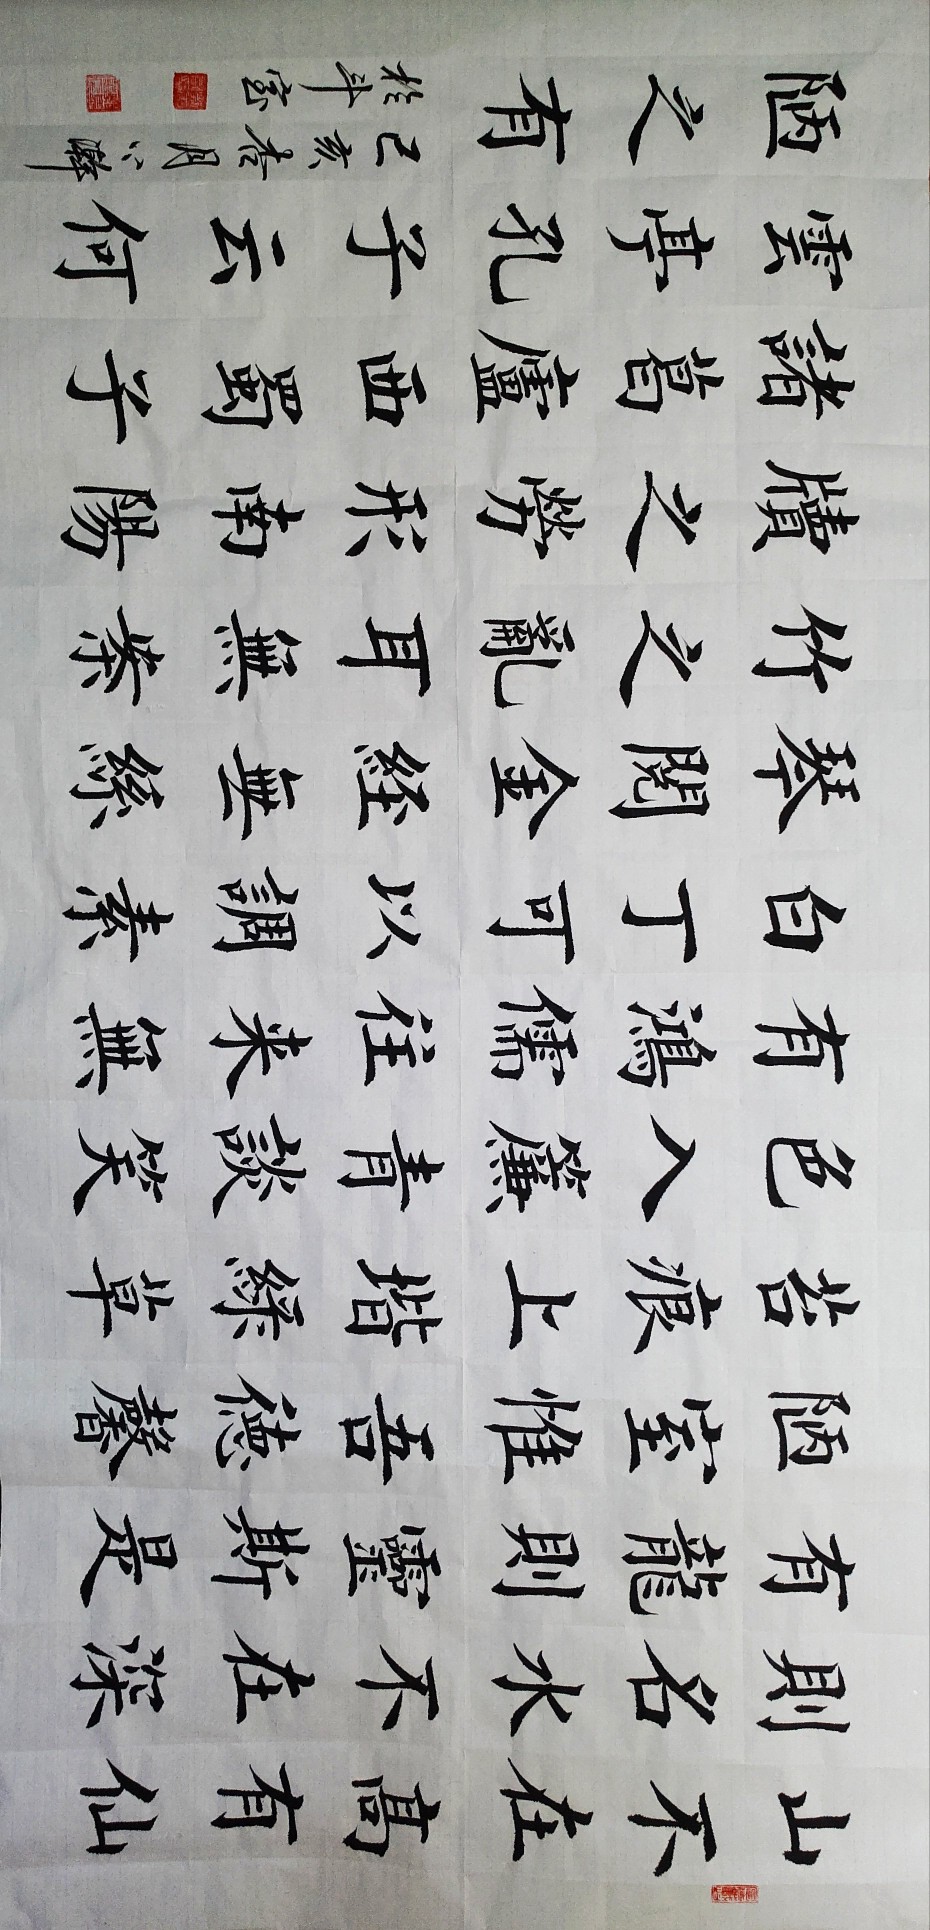 山不在高有仙
則名水不在深
有龍則靈斯是
陋室惟吾德馨
苔痕上堦綠草
色入簾青談笑
有鴻儒往来無
白丁可以調素
琴閱金経無絲
竹之亂耳無案
牘之勞形南陽
諸葛廬西蜀子
雲亭孔子云何
陋之有
己亥杏月
於斗室